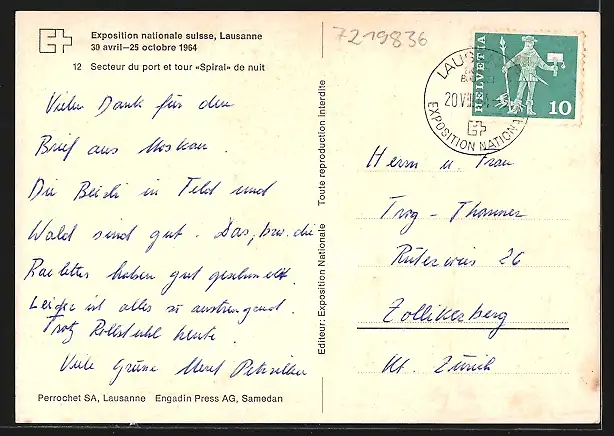 Exposition nationale suisse, Lausanne
30 avril—25 octobre 1964
12 Secteur du port et tour «Spiral» de nuit
7219836
HELVETIA
10
EXPOSITION NATION
Vielen Dank für den
Brief aus Moskau.
Die in Feld und
Wald sind gut. Das, bzw. die
haben gut geschmeckt.
Leider ist alles so anstrengend.
Trotz Rollstuhl heute.
Viele Grüsse
Toute reproduction interdite
Editeur: Exposition Nationale
Herrn u. Frau
Trog - Thanner
26
Zollikerberg
Kt. Zürich
Perrochet SA, Lausanne Engadin Press AG, Samedan